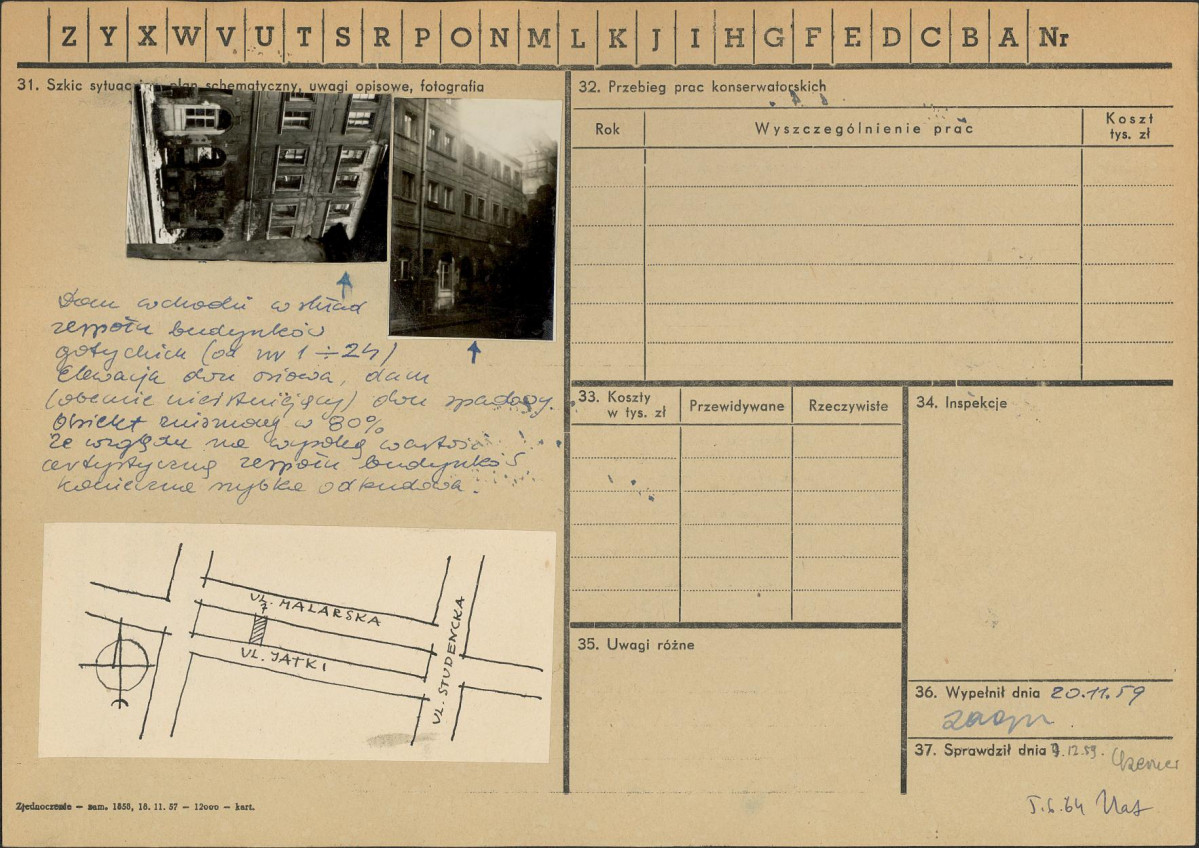 Z Y X W V U T S R P O N M L K J I H G F E D C B A Nr
31. Szkic sytuac plan schematyczny, uwagi opisowe, fotografia
Dom wchodzi w skład
zespołu budynków
gotyckich (od nr 1 ÷ 24)
Elewacja dwu osiowa, dach
(obecnie nieistniejący) dwu spadowy.
Obiekt zniszczony w 80%
Ze względu na wysoką wartość
artystyczną zespołu budynków
konieczna szybka odbudowa.
UL. MALARSKA
7
UL. JATKI
UL. STUDENCKA
Zjednoczenie — zam. 1858, 18. 11. 57 — 12000 — kart.
32. Przebieg prac konserwatorskich
Rok Wyszczególnienie prac Koszt tys. zł
33. Koszty w tys. zł Przewidywane Rzeczywiste
34. Inspekcje
35. Uwagi różne
36. Wypełnił dnia 20.11.59
37. Sprawdził dnia 7.12.59.